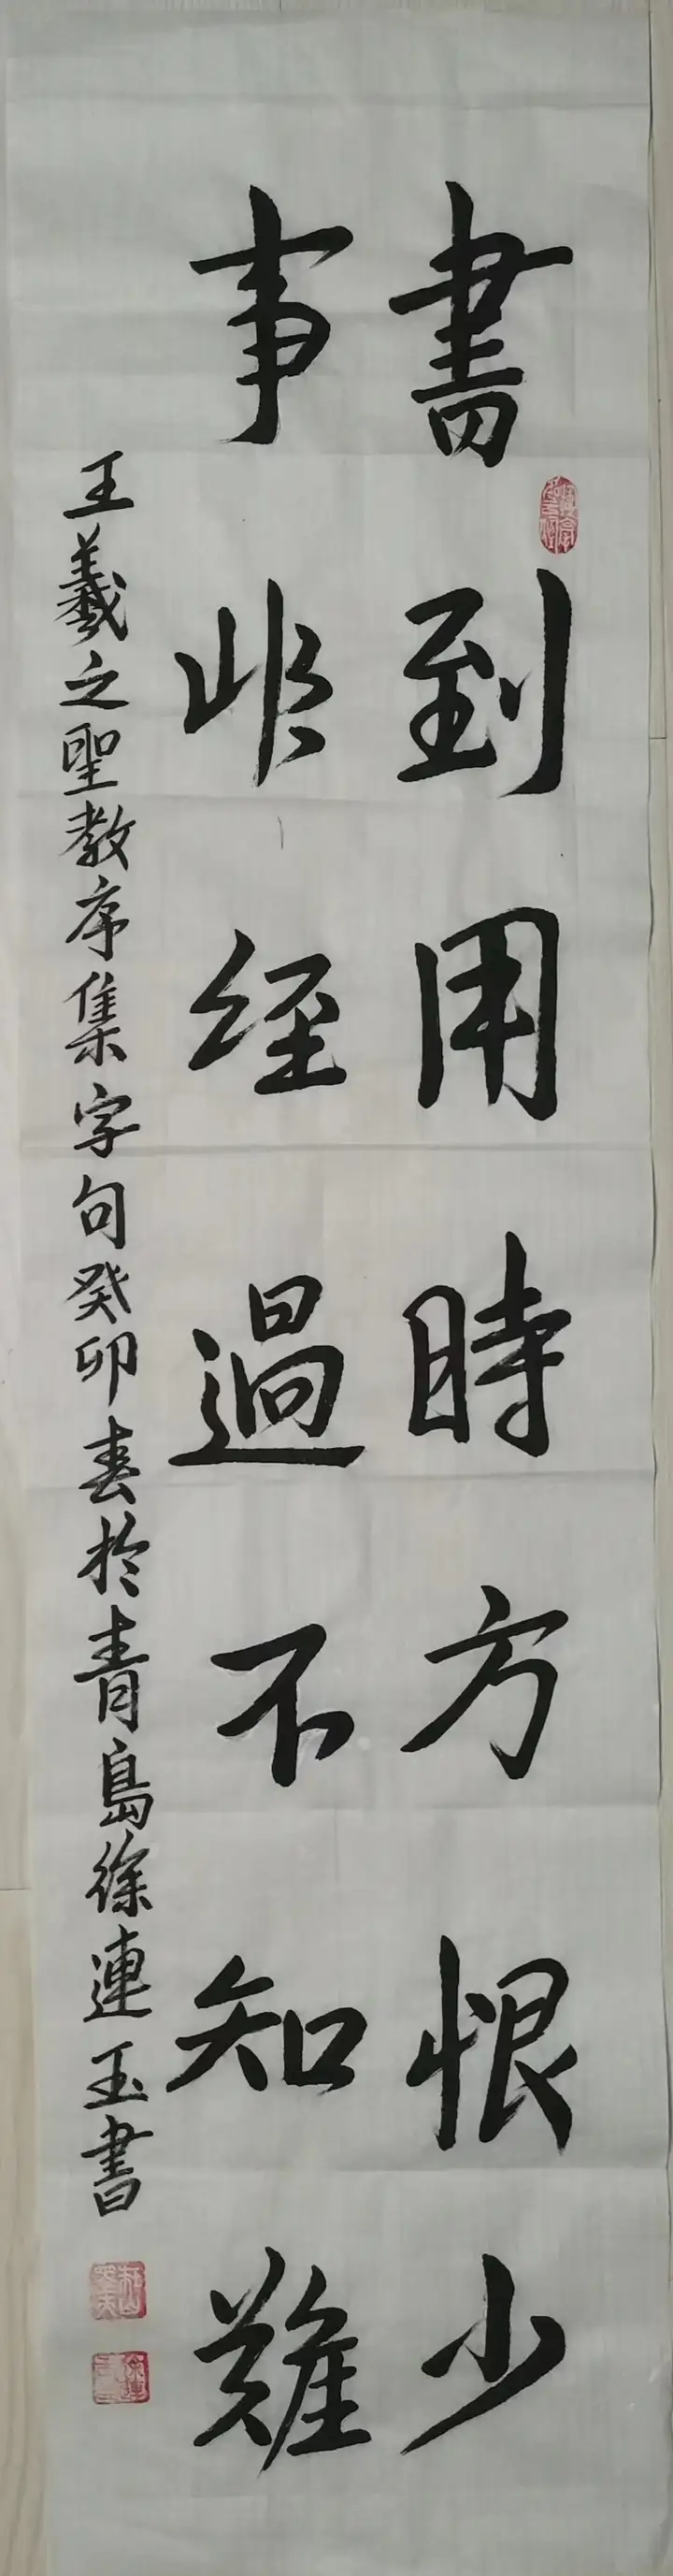 書到用時方恨少
事非经過不知難
王羲之聖教序集字句癸卯春於青島徐連玉書